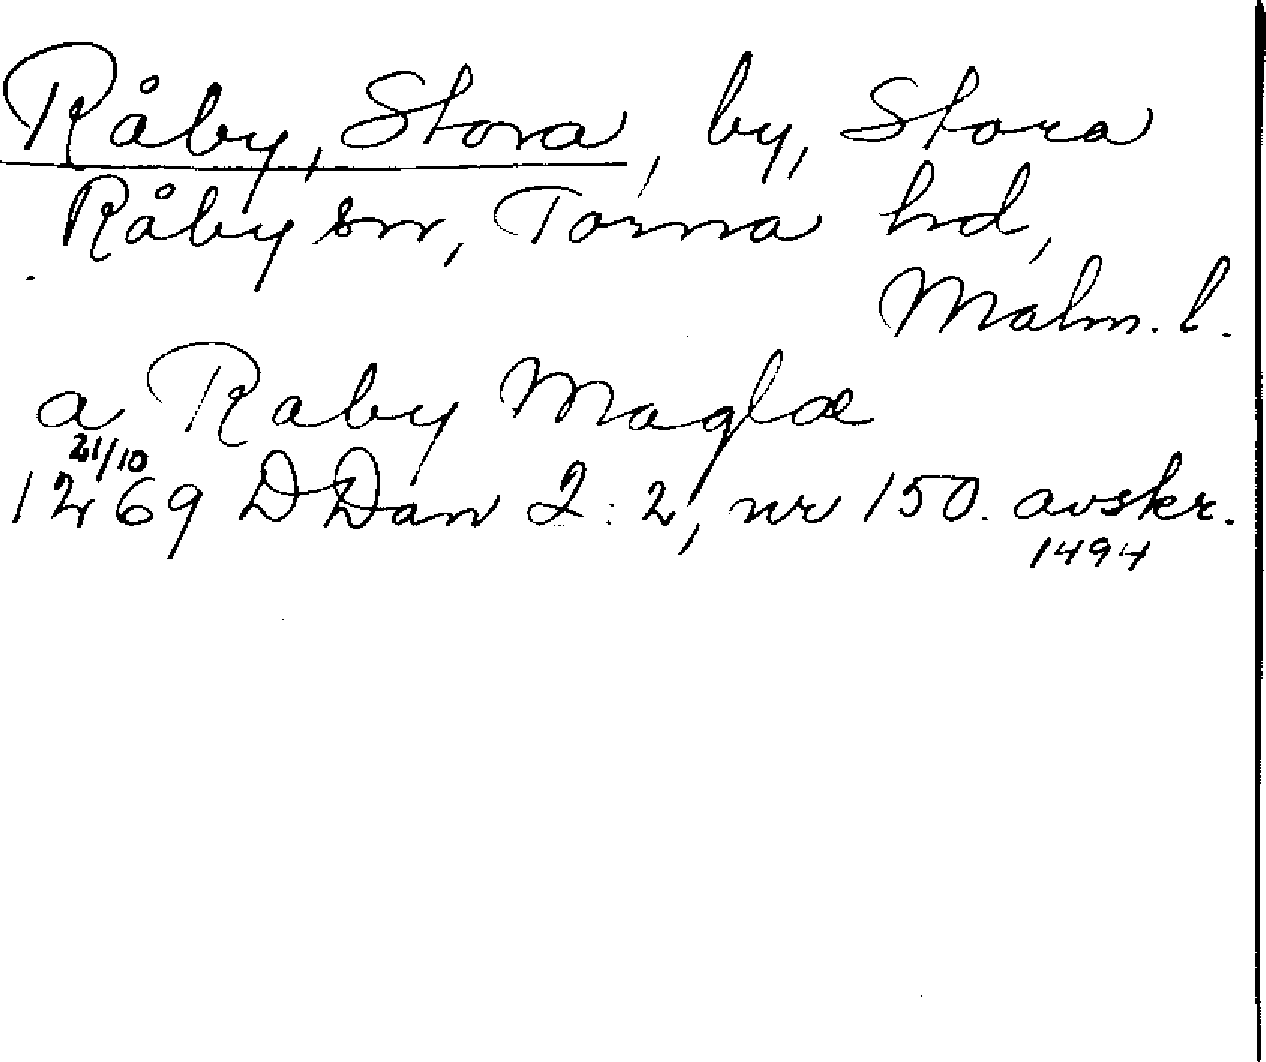 Råby, Stora, by, Stora
Råby sn, Torna hd,
Malm. l.
a Raby Maglæ
21/10
1269 DDan 2:2, nr 150. avskr.
1494